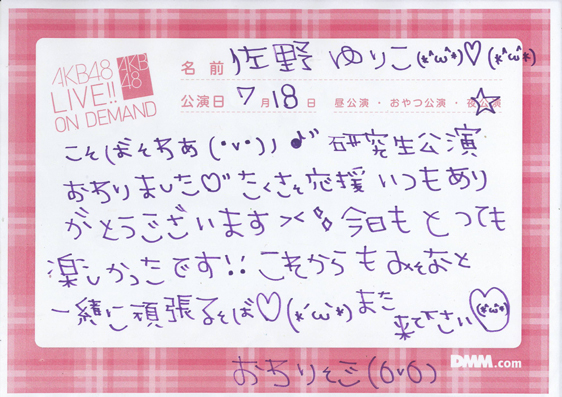 AKB48
LIVE!!
ON DEMAND
AKB
48
名前 佐野 ゆりこ(*^ω^*)♡(*^ω^*)
公演日 7月18日 昼公演・おやつ公演・夜公演
こそばそわあ(・v・)ノ♪ 研究生公演
おわりました♡ たくさそ応援 いつもあり
がとうございます >< 今日も とっても
楽しかったです!! これから もみそおと
一緒に頑張るそば♡(*´ω`*) また
来て下さい (*´ω`*)
DMM.com
おわりそご(OvO)